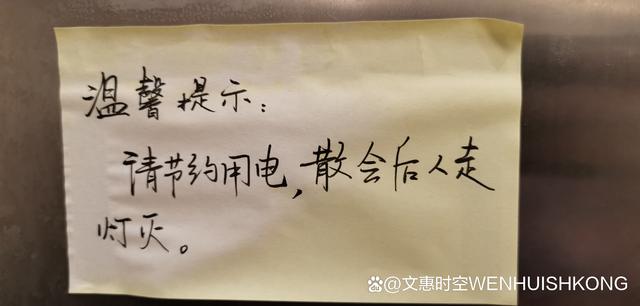 温馨提示：
请节约用电，散会后人走
灯灭。
@文惠时空WENHUISHKONG